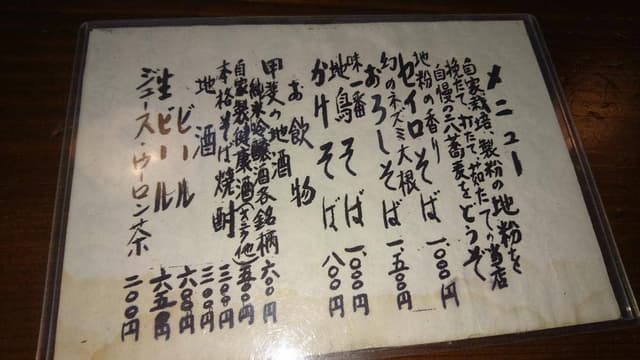 メニュー
自家栽培、製粉の地粉を
挽たて、打たて、茹たての当店
自慢の二八蕎麦をどうぞ
地粉の香り
セイロそば 一、〇〇〇円
幻のネズミ大根
おろしそば 一、五〇〇円
味一番
地鳥そば 一、〇〇〇円
かけそば 八〇〇円
お飲物
甲斐の地酒
純米吟醸酒各銘柄 六〇〇円
自家製健康酒 五〇〇円
本格そば焼酎 三〇〇円
地酒 三〇〇円
ビール 六〇〇円
生ビール 六五〇円
ジュース・ウーロン茶 二〇〇円